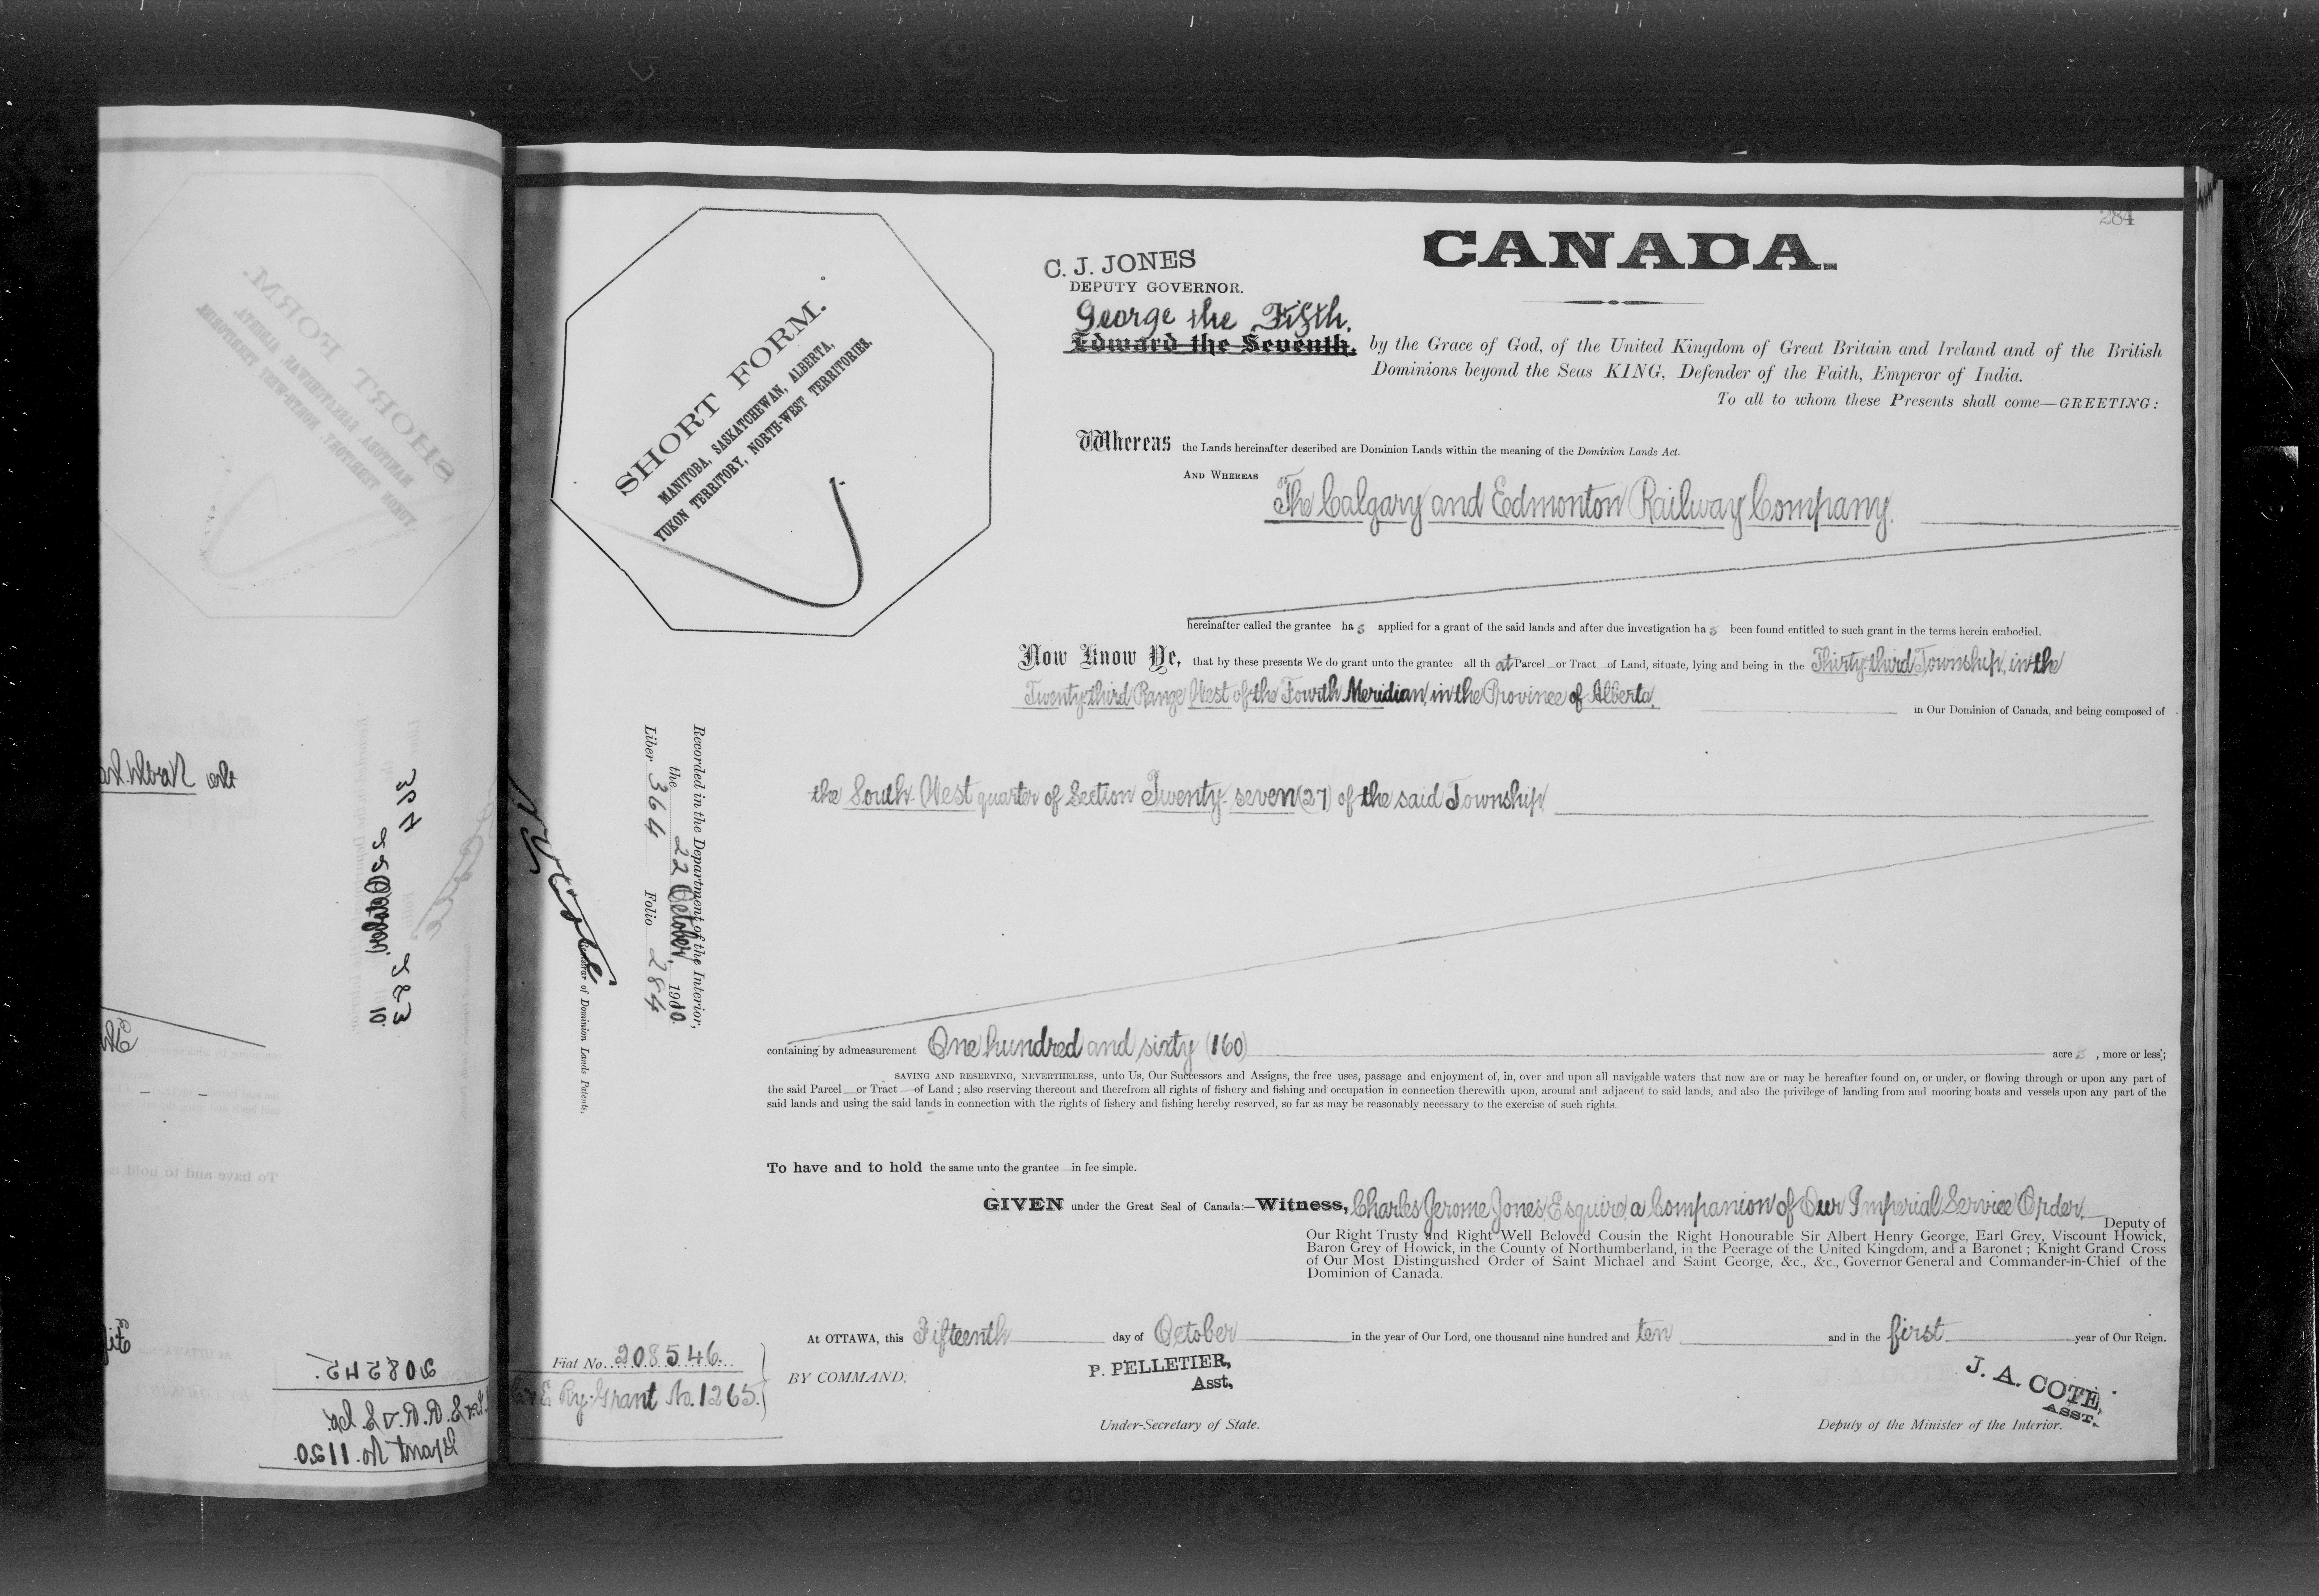 284
CANADA.
C. J. JONES
DEPUTY GOVERNOR.
George the Fifth,
Edward the Seventh, by the Grace of God, of the United Kingdom of Great Britain and Ireland and of the British
Dominions beyond the Seas KING, Defender of the Faith, Emperor of India.
To all to whom these Presents shall come—GREETING:
SHORT FORM.
MANITOBA, SASKATCHEWAN, ALBERTA,
YUKON TERRITORY, NORTH-WEST TERRITORIES.
Whereas the Lands hereinafter described are Dominion Lands within the meaning of the Dominion Lands Act.
AND WHEREAS The Calgary and Edmonton Railway Company.
hereinafter called the grantee has applied for a grant of the said lands and after due investigation has been found entitled to such grant in the terms herein embodied.
Now Know Ye, that by these presents We do grant unto the grantee all that Parcel or Tract of Land, situate, lying and being in the Thirty-third Township, in the
Twenty-third Range West of the Fourth Meridian, in the Province of Alberta, in Our Dominion of Canada, and being composed of
the South-West quarter of Section Twenty-seven (27) of the said Township
Recorded in the Department of the Interior,
the 22 October, 1910.
Liber 364 Folio 284
Registrar of Dominion Lands Patents.
containing by admeasurement One hundred and sixty (160) acres, more or less;
SAVING AND RESERVING, NEVERTHELESS, unto Us, Our Successors and Assigns, the free uses, passage and enjoyment of, in, over and upon all navigable waters that now are or may be hereafter found on, or under, or flowing through or upon any part of
the said Parcel or Tract of Land; also reserving thereout and therefrom all rights of fishery and fishing and occupation in connection therewith upon, around and adjacent to said lands, and also the privilege of landing from and mooring boats and vessels upon any part of the
said lands and using the said lands in connection with the rights of fishery and fishing hereby reserved, so far as may be reasonably necessary to the exercise of such rights.
To have and to hold the same unto the grantee in fee simple.
GIVEN under the Great Seal of Canada:—Witness, Charles Jerome Jones, Esquire, a Companion of Our Imperial Service Order, Deputy of
Our Right Trusty and Right Well Beloved Cousin the Right Honourable Sir Albert Henry George, Earl Grey, Viscount Howick,
Baron Grey of Howick, in the County of Northumberland, in the Peerage of the United Kingdom, and a Baronet; Knight Grand Cross
of Our Most Distinguished Order of Saint Michael and Saint George, &c., &c., Governor General and Commander-in-Chief of the
Dominion of Canada.
At OTTAWA, this Fifteenth day of October in the year of Our Lord, one thousand nine hundred and ten and in the first year of Our Reign.
Fiat No. 208546.
C. & E Ry. Grant No. 1265.
BY COMMAND,
P. PELLETIER,
Asst,
Under-Secretary of State.
J. A. COTE,
ASST.
Deputy of the Minister of the Interior.